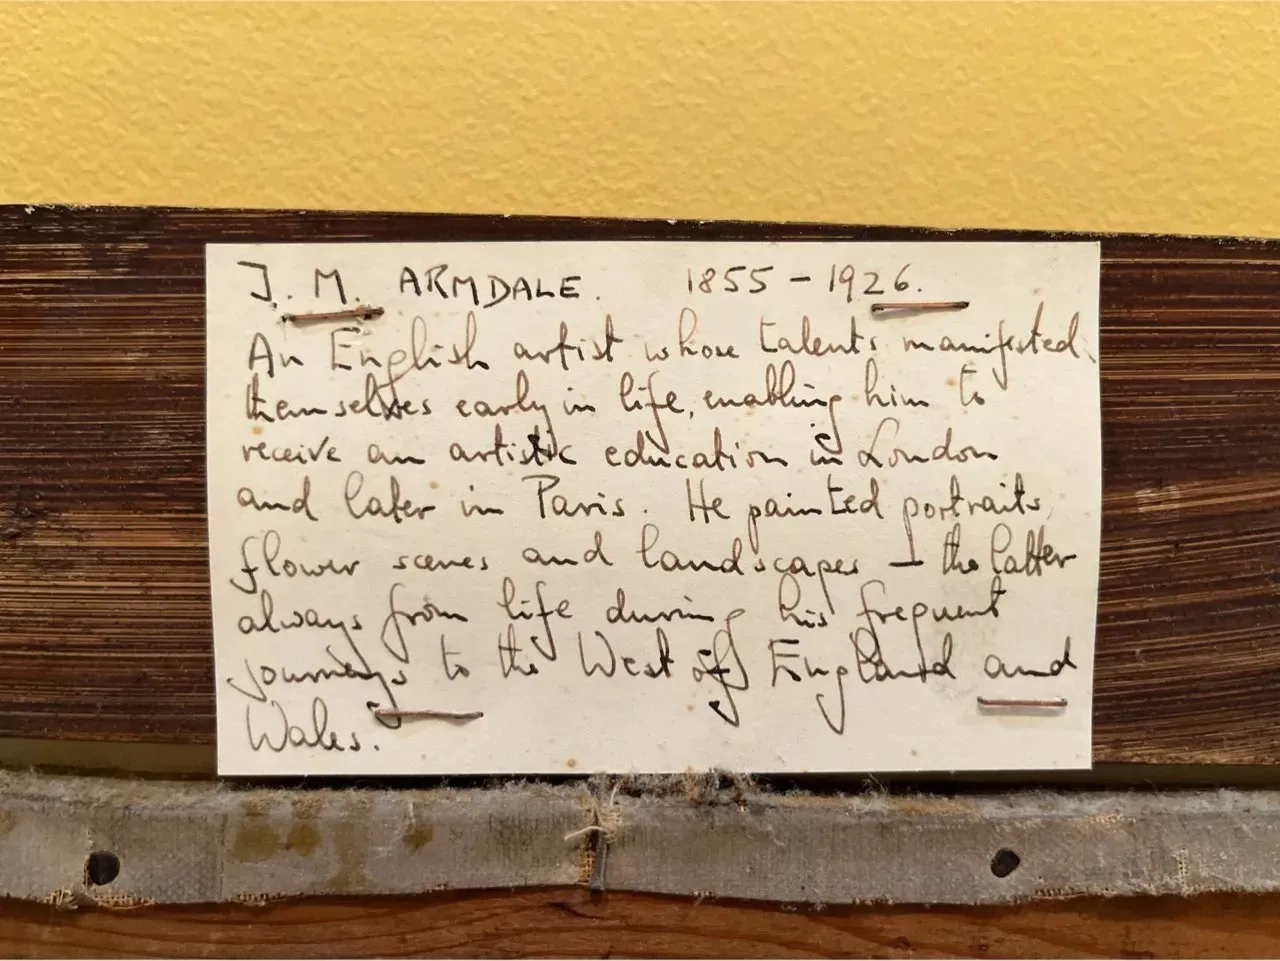 J. M. ARMDALE. 1855 - 1926.
An English artist whose talents manifested
themselves early in life, enabling him to
receive an artistic education in London
and later in Paris. He painted portraits,
flower scenes and landscapes - the latter
always from life during his frequent
journeys to the West of England and
Wales.